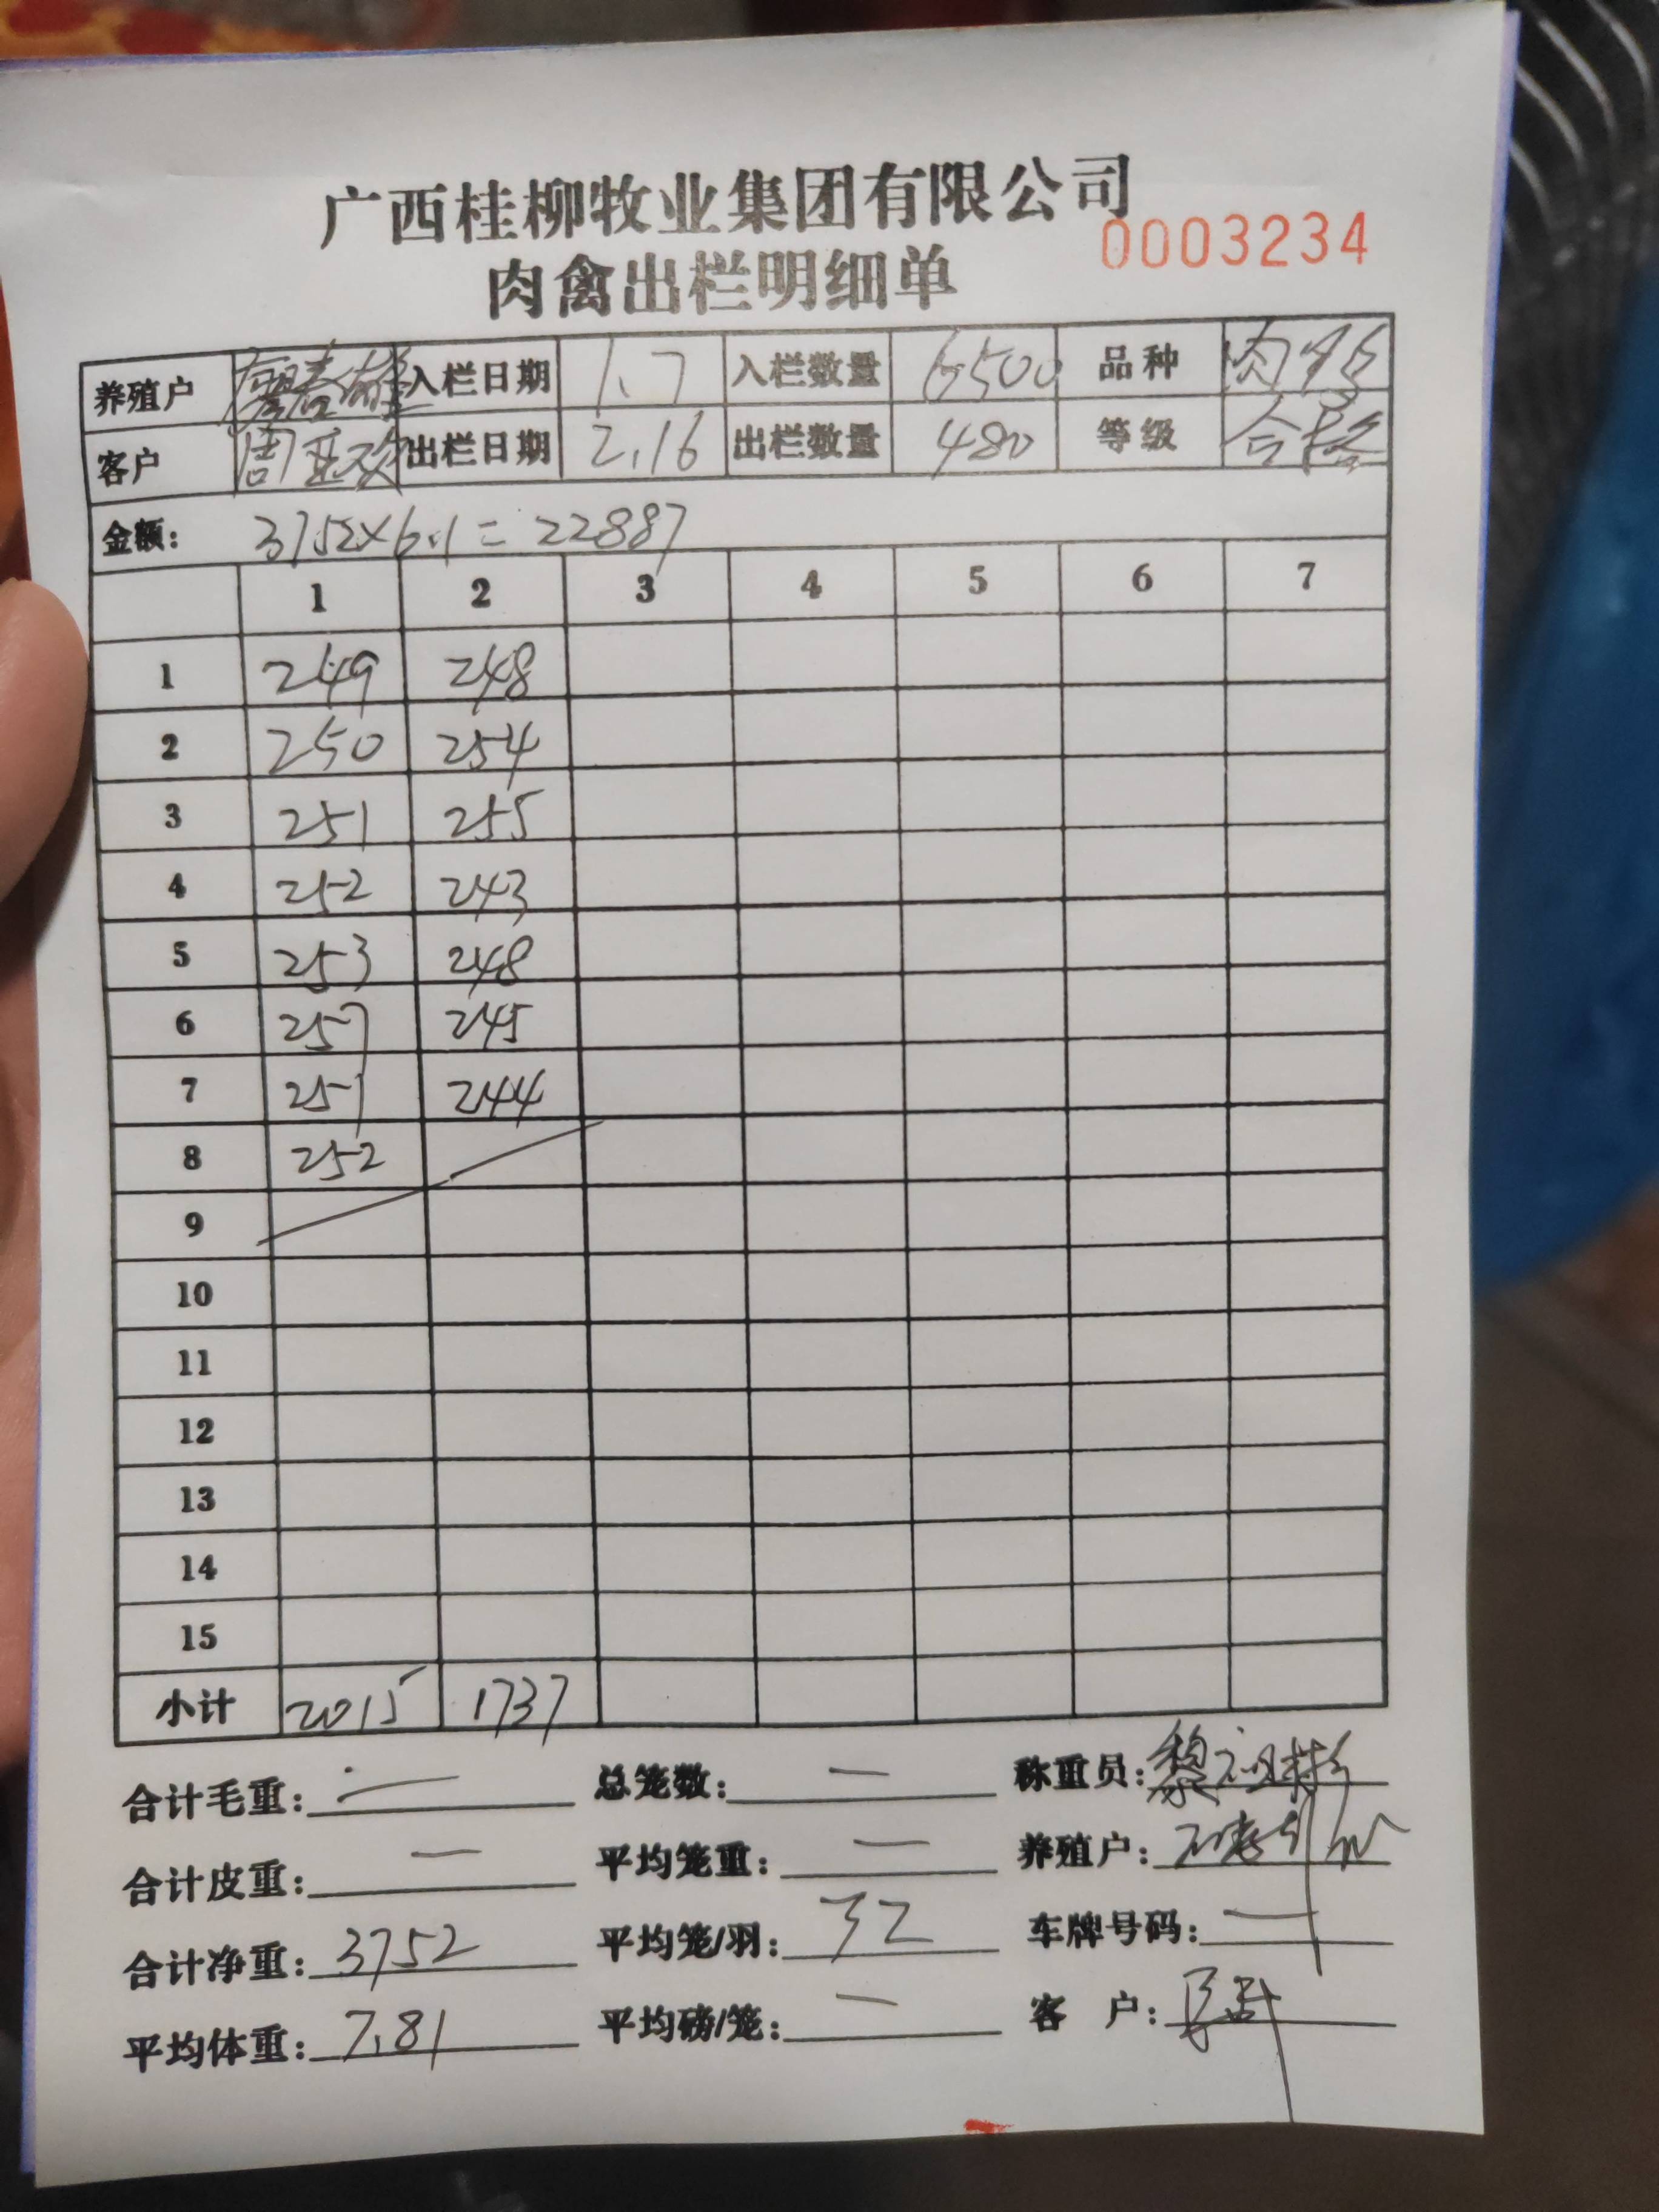 广西桂柳牧业集团有限公司
0003234
肉禽出栏明细单
养殖户 入栏日期 1.7 入栏数量 6500 品种 肉鸭
客户 出栏日期 2.16 出栏数量 480 等级 合格
金额: 3752×6.1=22887
1 2 3 4 5 6 7
1 249 248
2 250 254
3 251 255
4 252 243
5 253 248
6 257 245
7 251 244
8 252
9
10
11
12
13
14
15
小计 2015 1737
合计毛重: — 总笼数: — 称重员:
合计皮重: — 平均笼重: — 养殖户:
合计净重: 3752 平均笼/羽: 32 车牌号码: —
平均体重: 7.81 平均磅/笼: — 客 户: